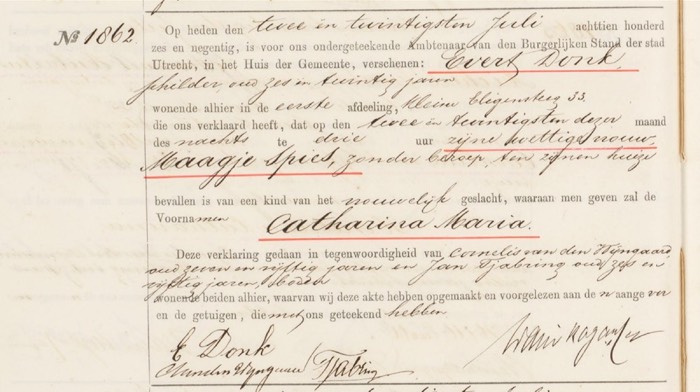 No 1862
Op heden den twee en twintigsten Juli achttien honderd
zes en negentig, is voor ons ondergeteekende Ambtenaar van den Burgerlijken Stand der stad
Utrecht, in het Huis der Gemeente, verschenen: Evert Donk,
schilder, oud zes en twintig jaren
wonende alhier in de eerste afdeeling, kleine Eligensteeg 33.
die ons verklaard heeft, dat op den twee en twintigsten dezer maand
des nachts te drie uur zijne wettige vrouw
Maagje Spies, zonder beroep, ten zijnen huize
bevallen is van een kind van het vrouwelijk geslacht, waaraan men geven zal de
Voornamen Catharina Maria.
Deze verklaring gedaan in tegenwoordigheid van Cornelis van den Wijngaard
oud zeven en vijftig jaren en Jan Tjabring oud zes en
vijftig jaren, boden
wonende beiden alhier, waarvan wij deze akte hebben opgemaakt en voorgelezen aan de n aange ver
en de getuigen, die met ons geteekend hebben
E Donk
Tjabring